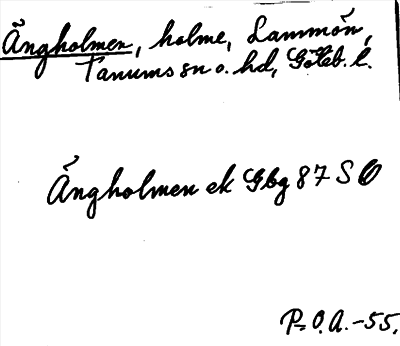 Ängholmen, holme, Lammön,
Tanums sn o. hd, Göteb. l.
Ängholmen ek Gbg 87 S O
P. O. A. -55.